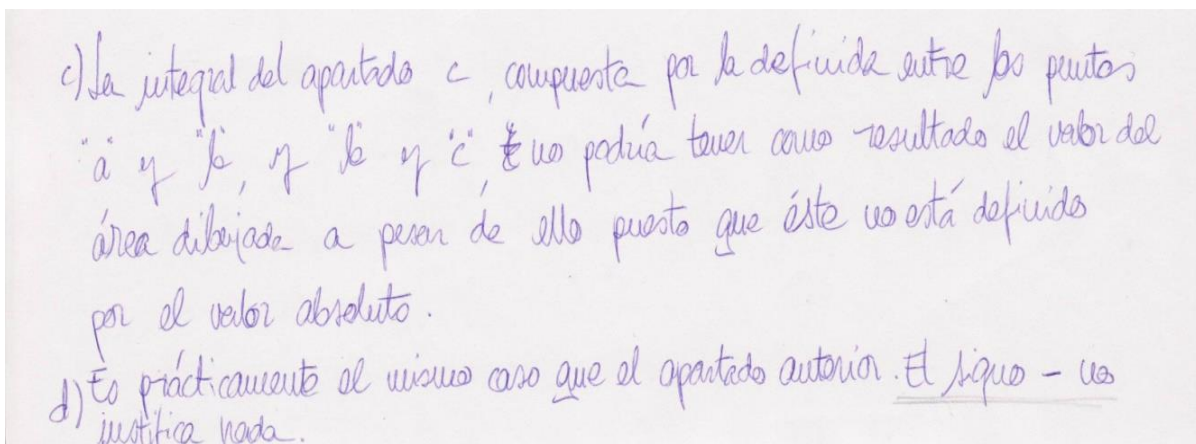 c) La integral del apartado c, compuesta por la definida entre los puntos
"a" y "b", y "b" y "c", no podría tener como resultado el valor del
área dibujada a pesar de ello puesto que éste no está definido
por el valor absoluto.
d) Es prácticamente el mismo caso que el apartado anterior. El signo - no
justifica nada.